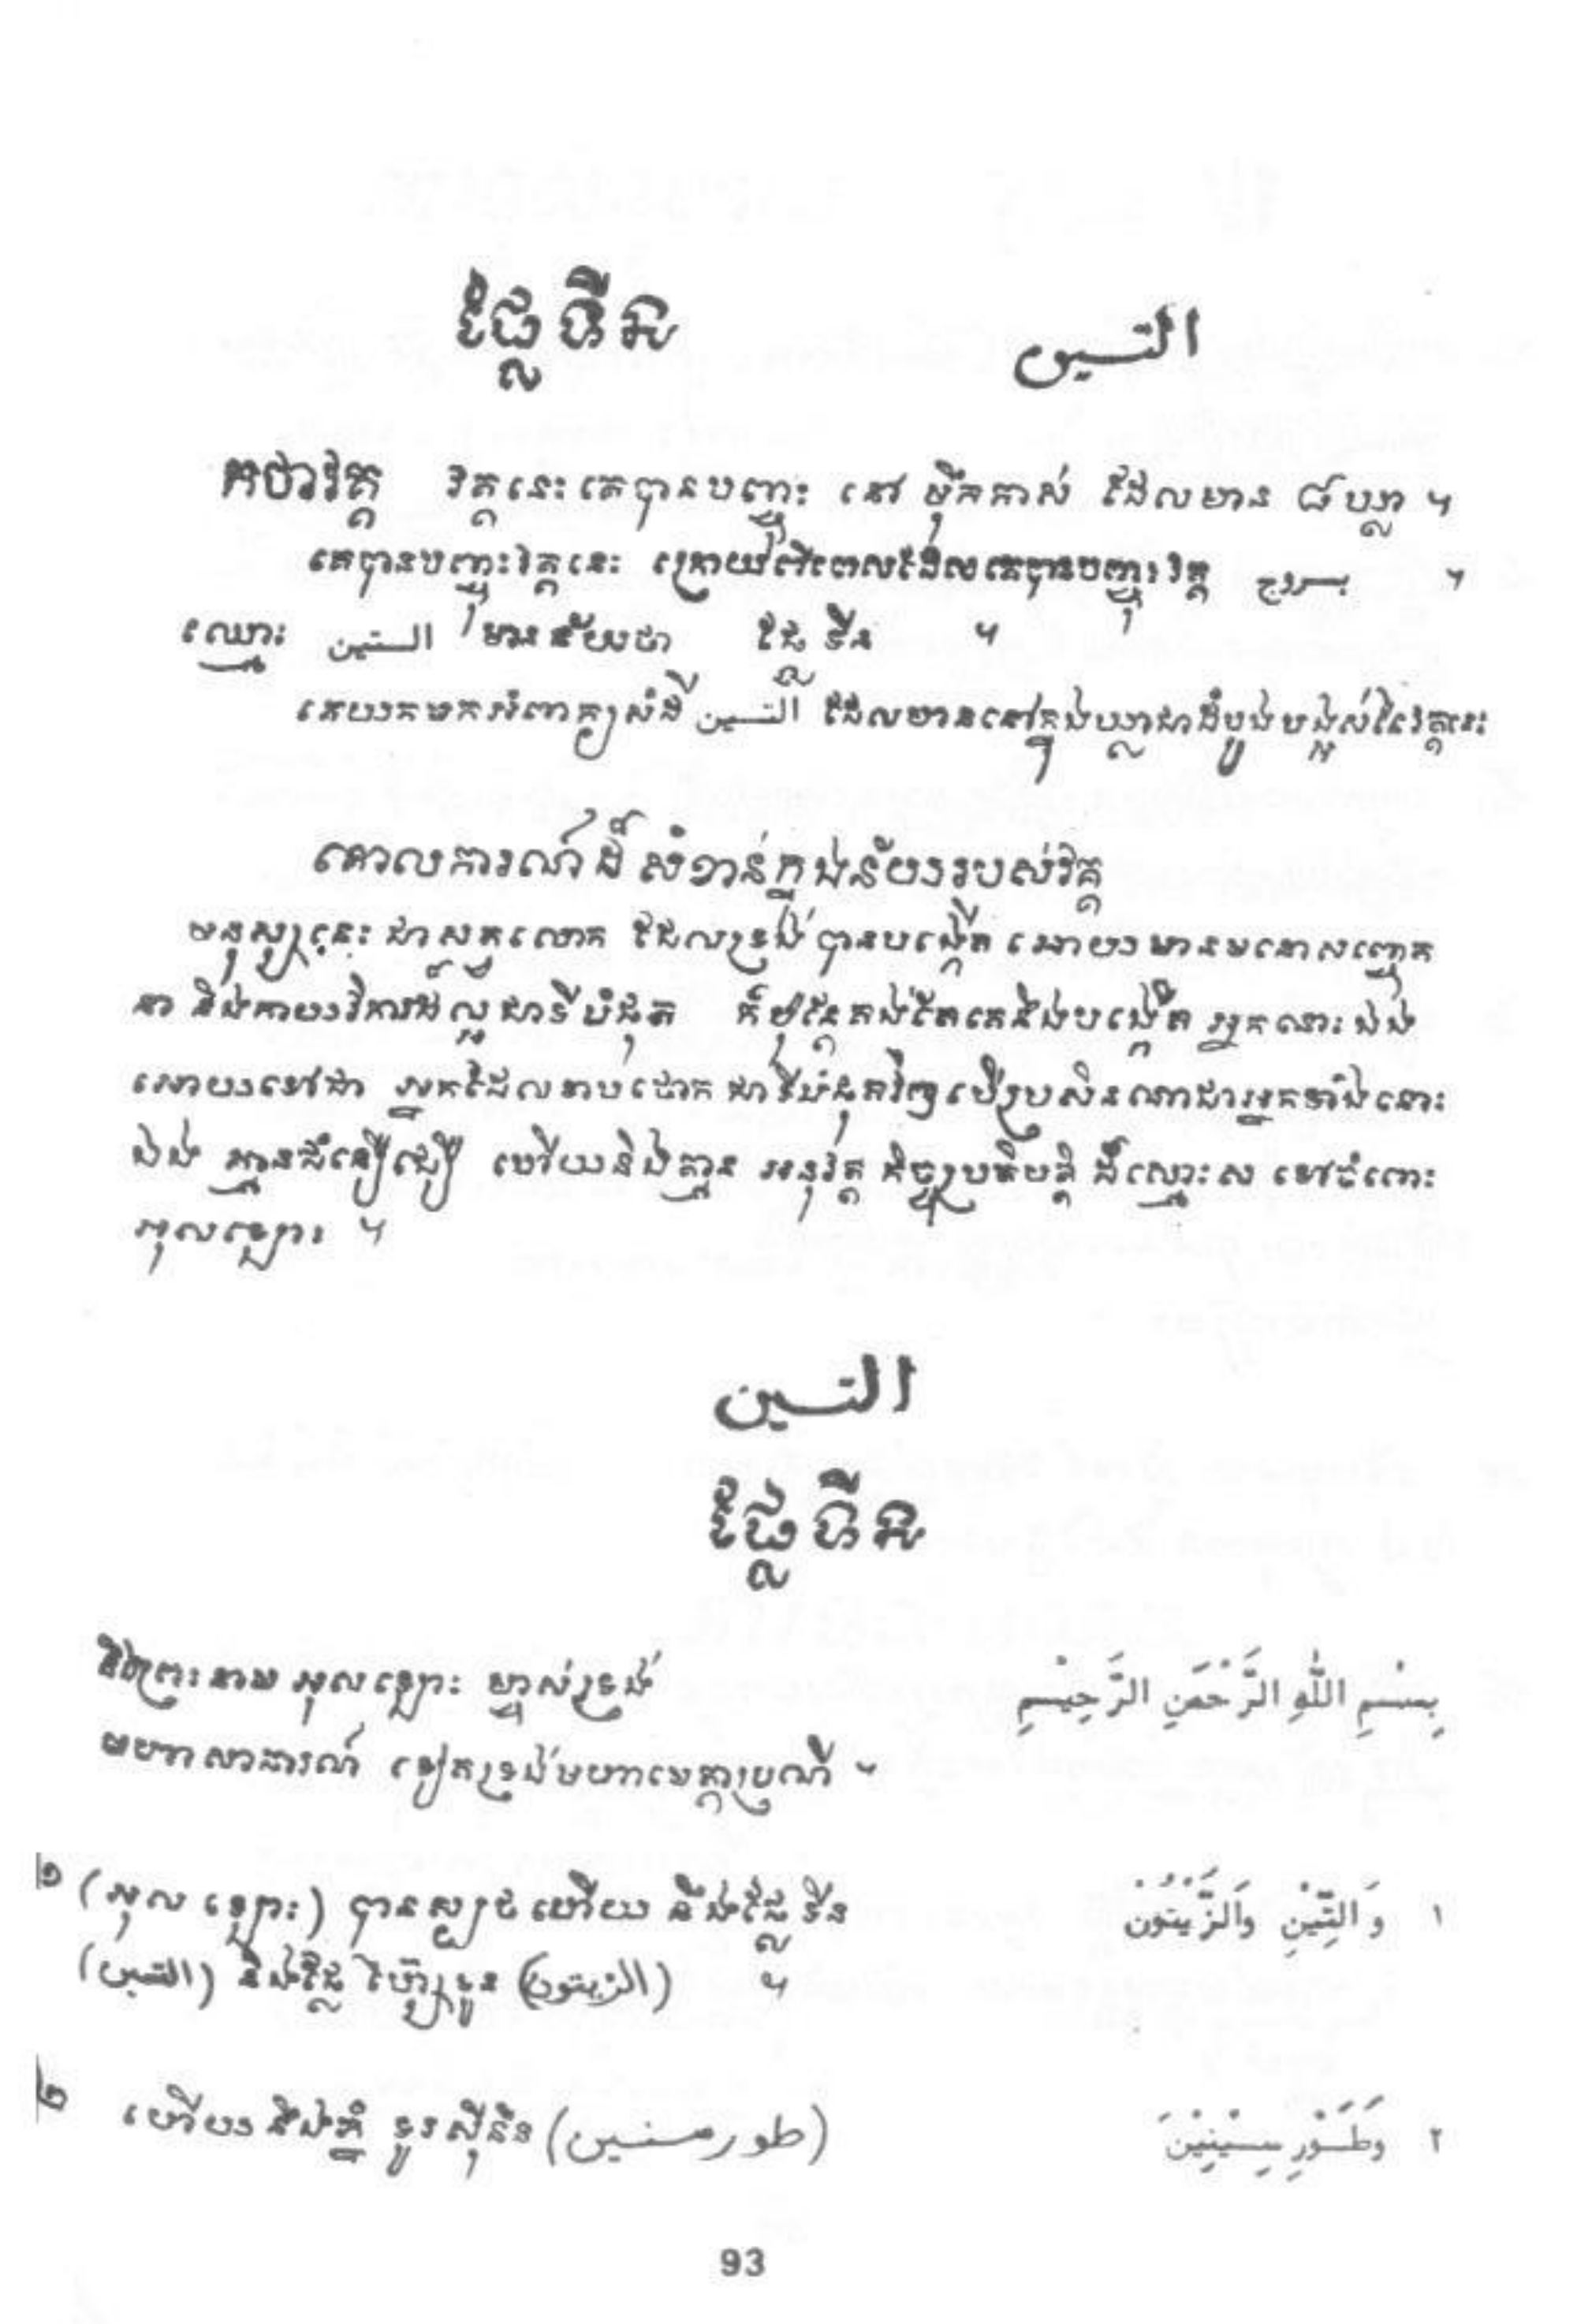 ផ្លែទីន التين
កថាវគ្គ វគ្គនេះគេបានបញ្ចុះ នៅ ម៉ឹកកាស់ ដែលមាន ៨ ឃ្លា ។
គេបានបញ្ចុះវគ្គនេះ ក្រោយពីពេលដែលគេបានបញ្ចុះវគ្គ بروج ។
ឈ្មោះ التين មានន័យថា ផ្លែ ទីន ។
គេយកមកអំពីពាក្យសំដី التين ដែលមាននៅក្នុងឃ្លាជាដំបូងបង្អស់នៃវគ្គនេះ
គោលការណ៍ដ៏សំខាន់ក្នុងន័យរបស់វគ្គ
មនុស្សនេះ ជាសត្វលោក ដែលទ្រង់ បានបង្កើត អោយមានមនោសញ្ចេត
នា និងកាយវិការដ៏ល្អជាទីបំផុត ក៏ប៉ុន្តែគង់តែគេនឹងបង្កើត អ្នកណាះឯង
អោយទៅជា អ្នកដែលទាបថោក ជាទីបំផុតវិញ បើប្រសិនណាជាអ្នកទាំងនោះ
ឯង គ្មានជំនឿជឿ ហើយនិងគ្មាន អនុវត្ត កិច្ចប្រតិបត្តិ ដ៏ស្មោះស ទៅចំពោះ
អុលឡោះ ។
التين
ផ្លែទីន
នឹងព្រះនាម អុលឡោះ ម្ចាស់ទ្រង់ بِسْمِ اللَّهِ الرَّحْمَنِ الرَّحِيمِ
មហាសាធារណ៍ ទៀតទ្រង់មហាមេត្តាប្រណី ។
១ (អុលឡោះ) បានស្បថ ហើយ នឹងផ្លែទីន ١ وَالتِّينِ وَالزَّيْتُونْ
(التين) នឹងផ្លែ (الزيتون) ។
២ ហើយ នឹងភ្នំ ទួរស៊ីនីន (طور سنين) ٢ وَطُورِ سِينِينَ
93